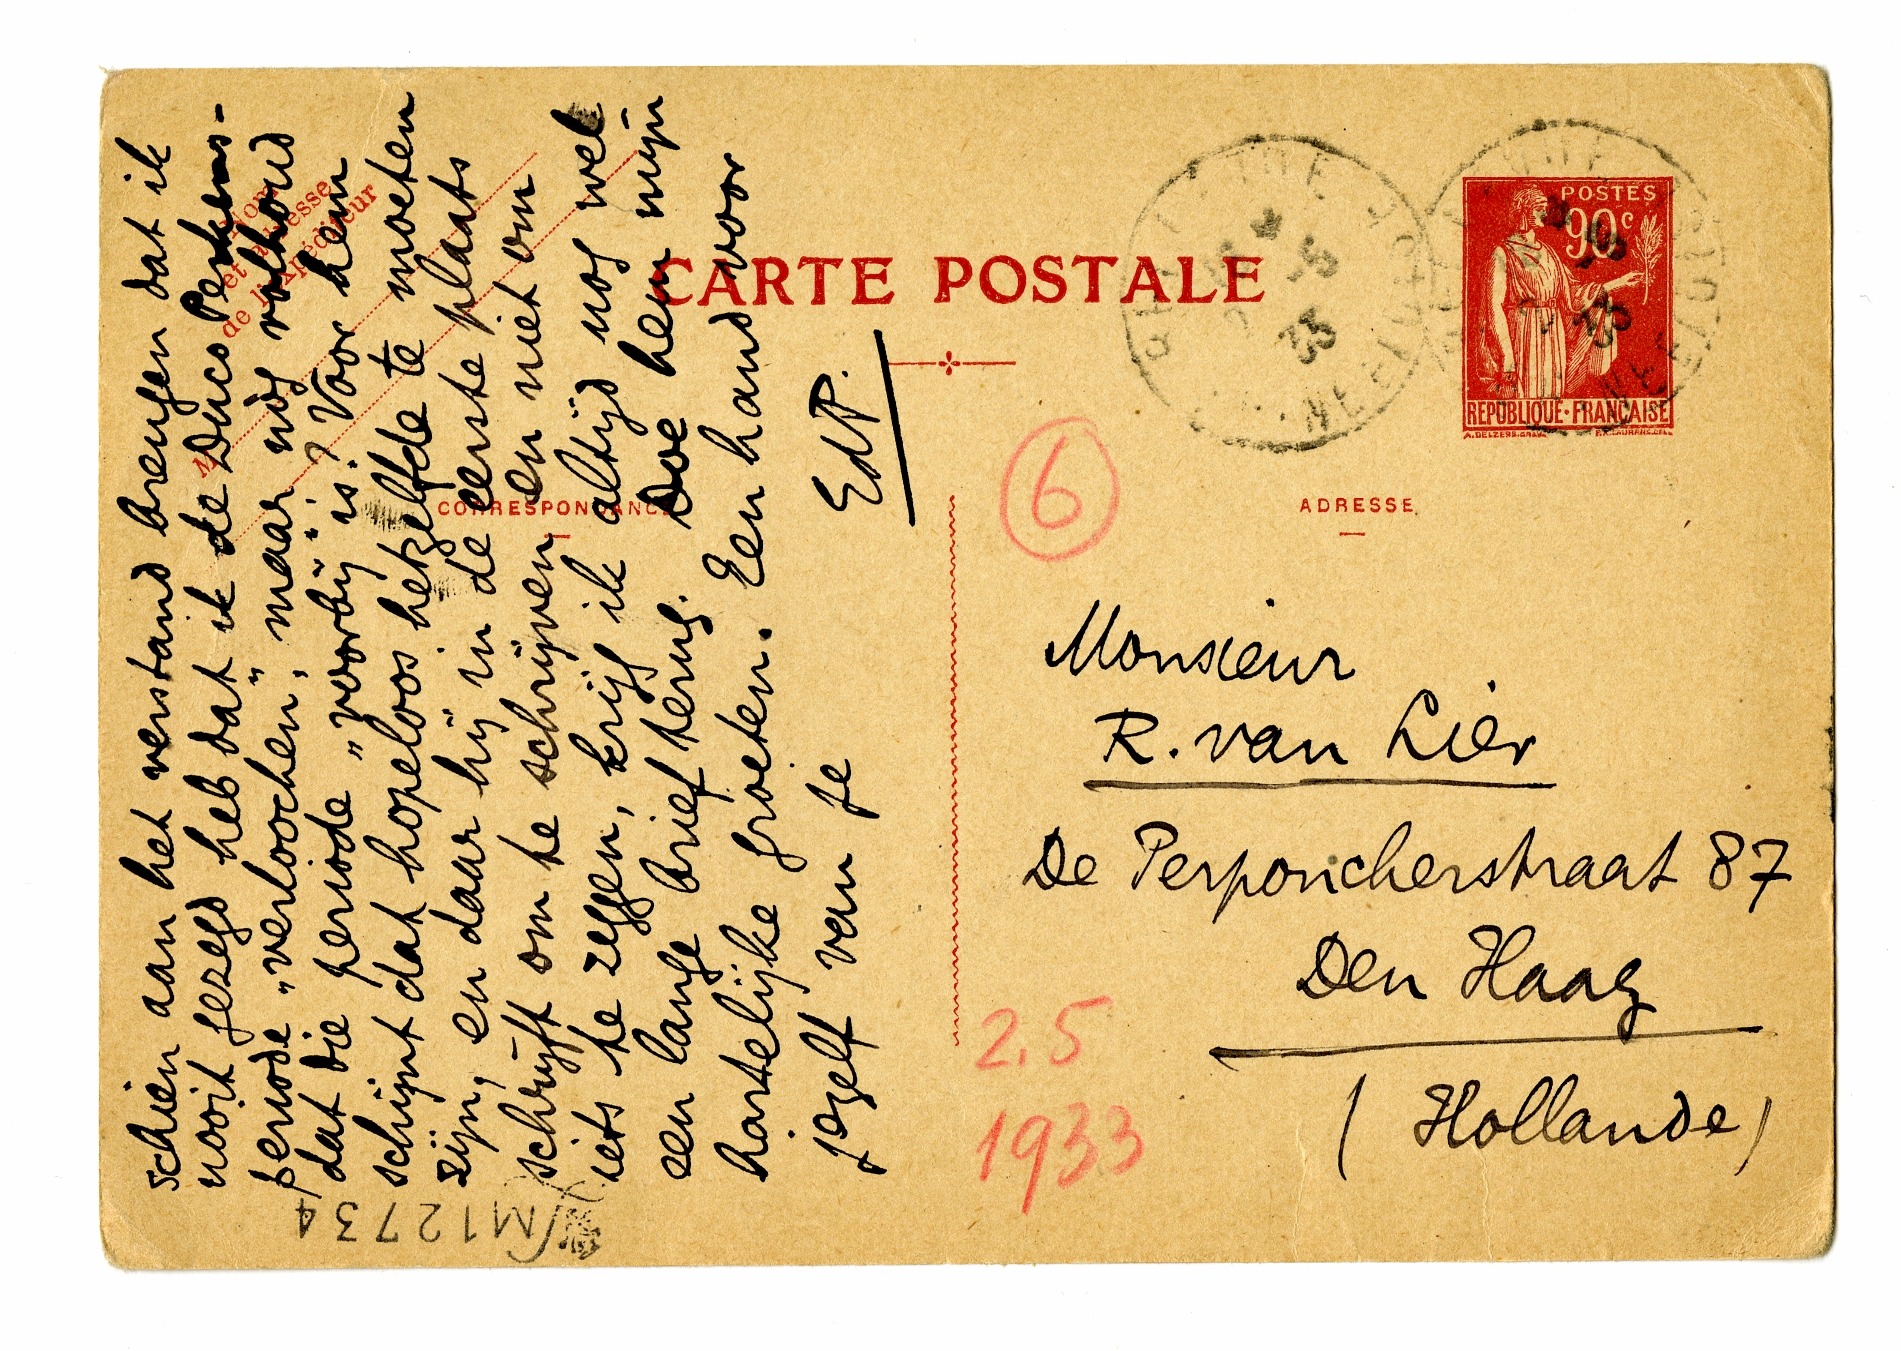 schien aan het verstand brengen dat ik
nooit gezegd heb dat ik de Duco Perkens-
periode „verloochen”, maar nòg volhoud
dat die periode „voorbij” is? Voor hem
schijnt dat hopeloos hetzelfde te moeten
zijn, en daar hij in de eerste plaats
schrijft om te schrijven en niet om
iets te zeggen, krijg ik altijd nog wel
een lange brief terug. Doe hem mijn
hartelijke groeten. Een hand voor
jezelf van je
EdP.
M12734
Nom
et adresse
de l'expéditeur
CARTE POSTALE
CORRESPONDANCE
ADRESSE
POSTES
90c
REPUBLIQUE·FRANÇAISE
33
6
Monsieur
R. van Lier
De Perponcherstraat 87
Den Haag
(Hollande)
2.5
1933